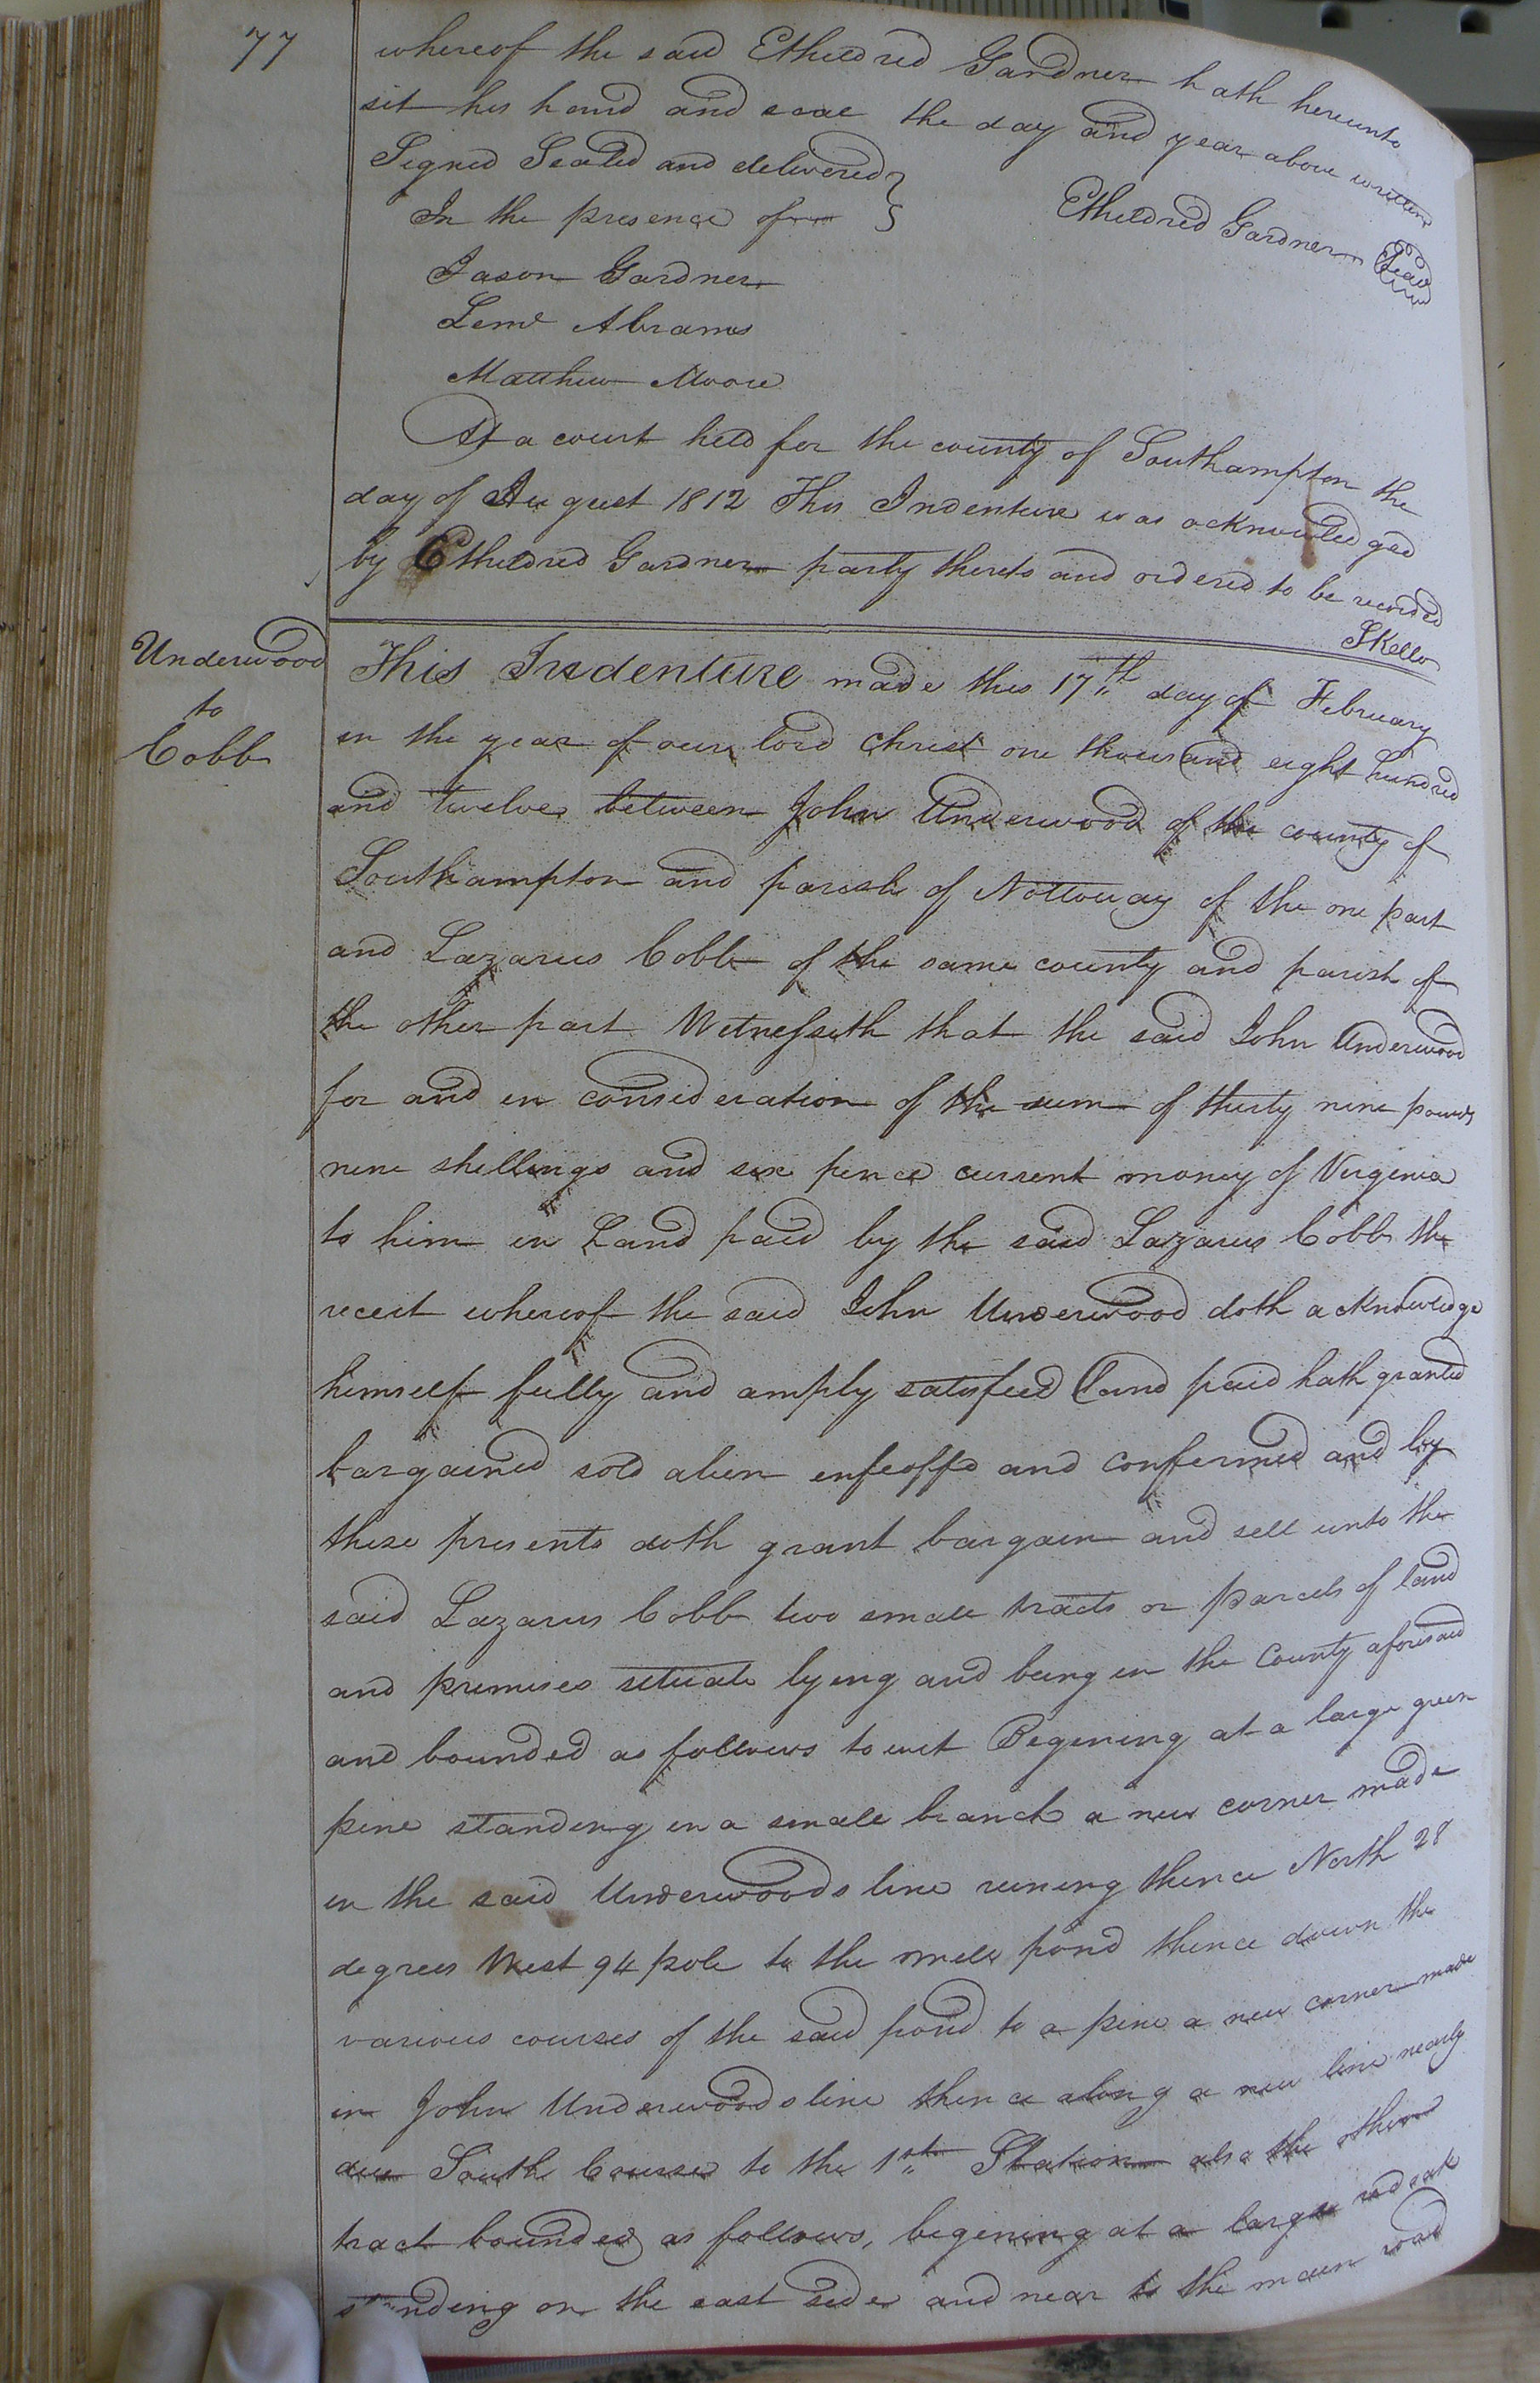 77
whereof the said Etheldred Gardner hath hereunto
set his hand and seal the day and year above written
Signed Sealed and delivered }
In the presence of }
Etheldred Gardner Seal
Jason Gardner
Leml Abrams
Matthew Moore
At a court held for the county of Southampton the
day of August 1812 This Indenture was acknowledged
by Etheldred Gardner party thereto and ordered to be recorded
SKello
Underwood
to
Cobb
This Indenture made this 17th day of February
in the year of our lord christ one thousand eight hundred
and twelve between John Underwood of the county of
Southampton and parish of Nottoway of the one part
and Lazarus Cobb of the same county and parish of
the other part Witnesseth that the said John Underwood
for and in consideration of the sum of thirty nine pounds
nine shillings and six pence current money of Virginia
to him in hand paid by the said Lazarus Cobb the
receit whereof the said John Underwood doth acknowledge
himself fully and amply satisfied and paid hath granted
bargained sold alien enfeoffd and confermed and by
these presents doth grant bargain and sell unto the
said Lazarus Cobb two small tracts or parcels of land
and premises situate lying and being in the County aforesaid
and bounded as follows to wit Begening at a large green
pine standing in a small branch a new corner made
in the said Underwoods line runing thence North 28
degrees West 94 pole to the mill pond thence down the
various courses of the said pond to a pine a new corner made
in John Underwoods line thence along a new line nearly
due South Course to the 1st Station also the other
tract bounded as follows, begening at a large red oak
standing on the east side and near to the main road